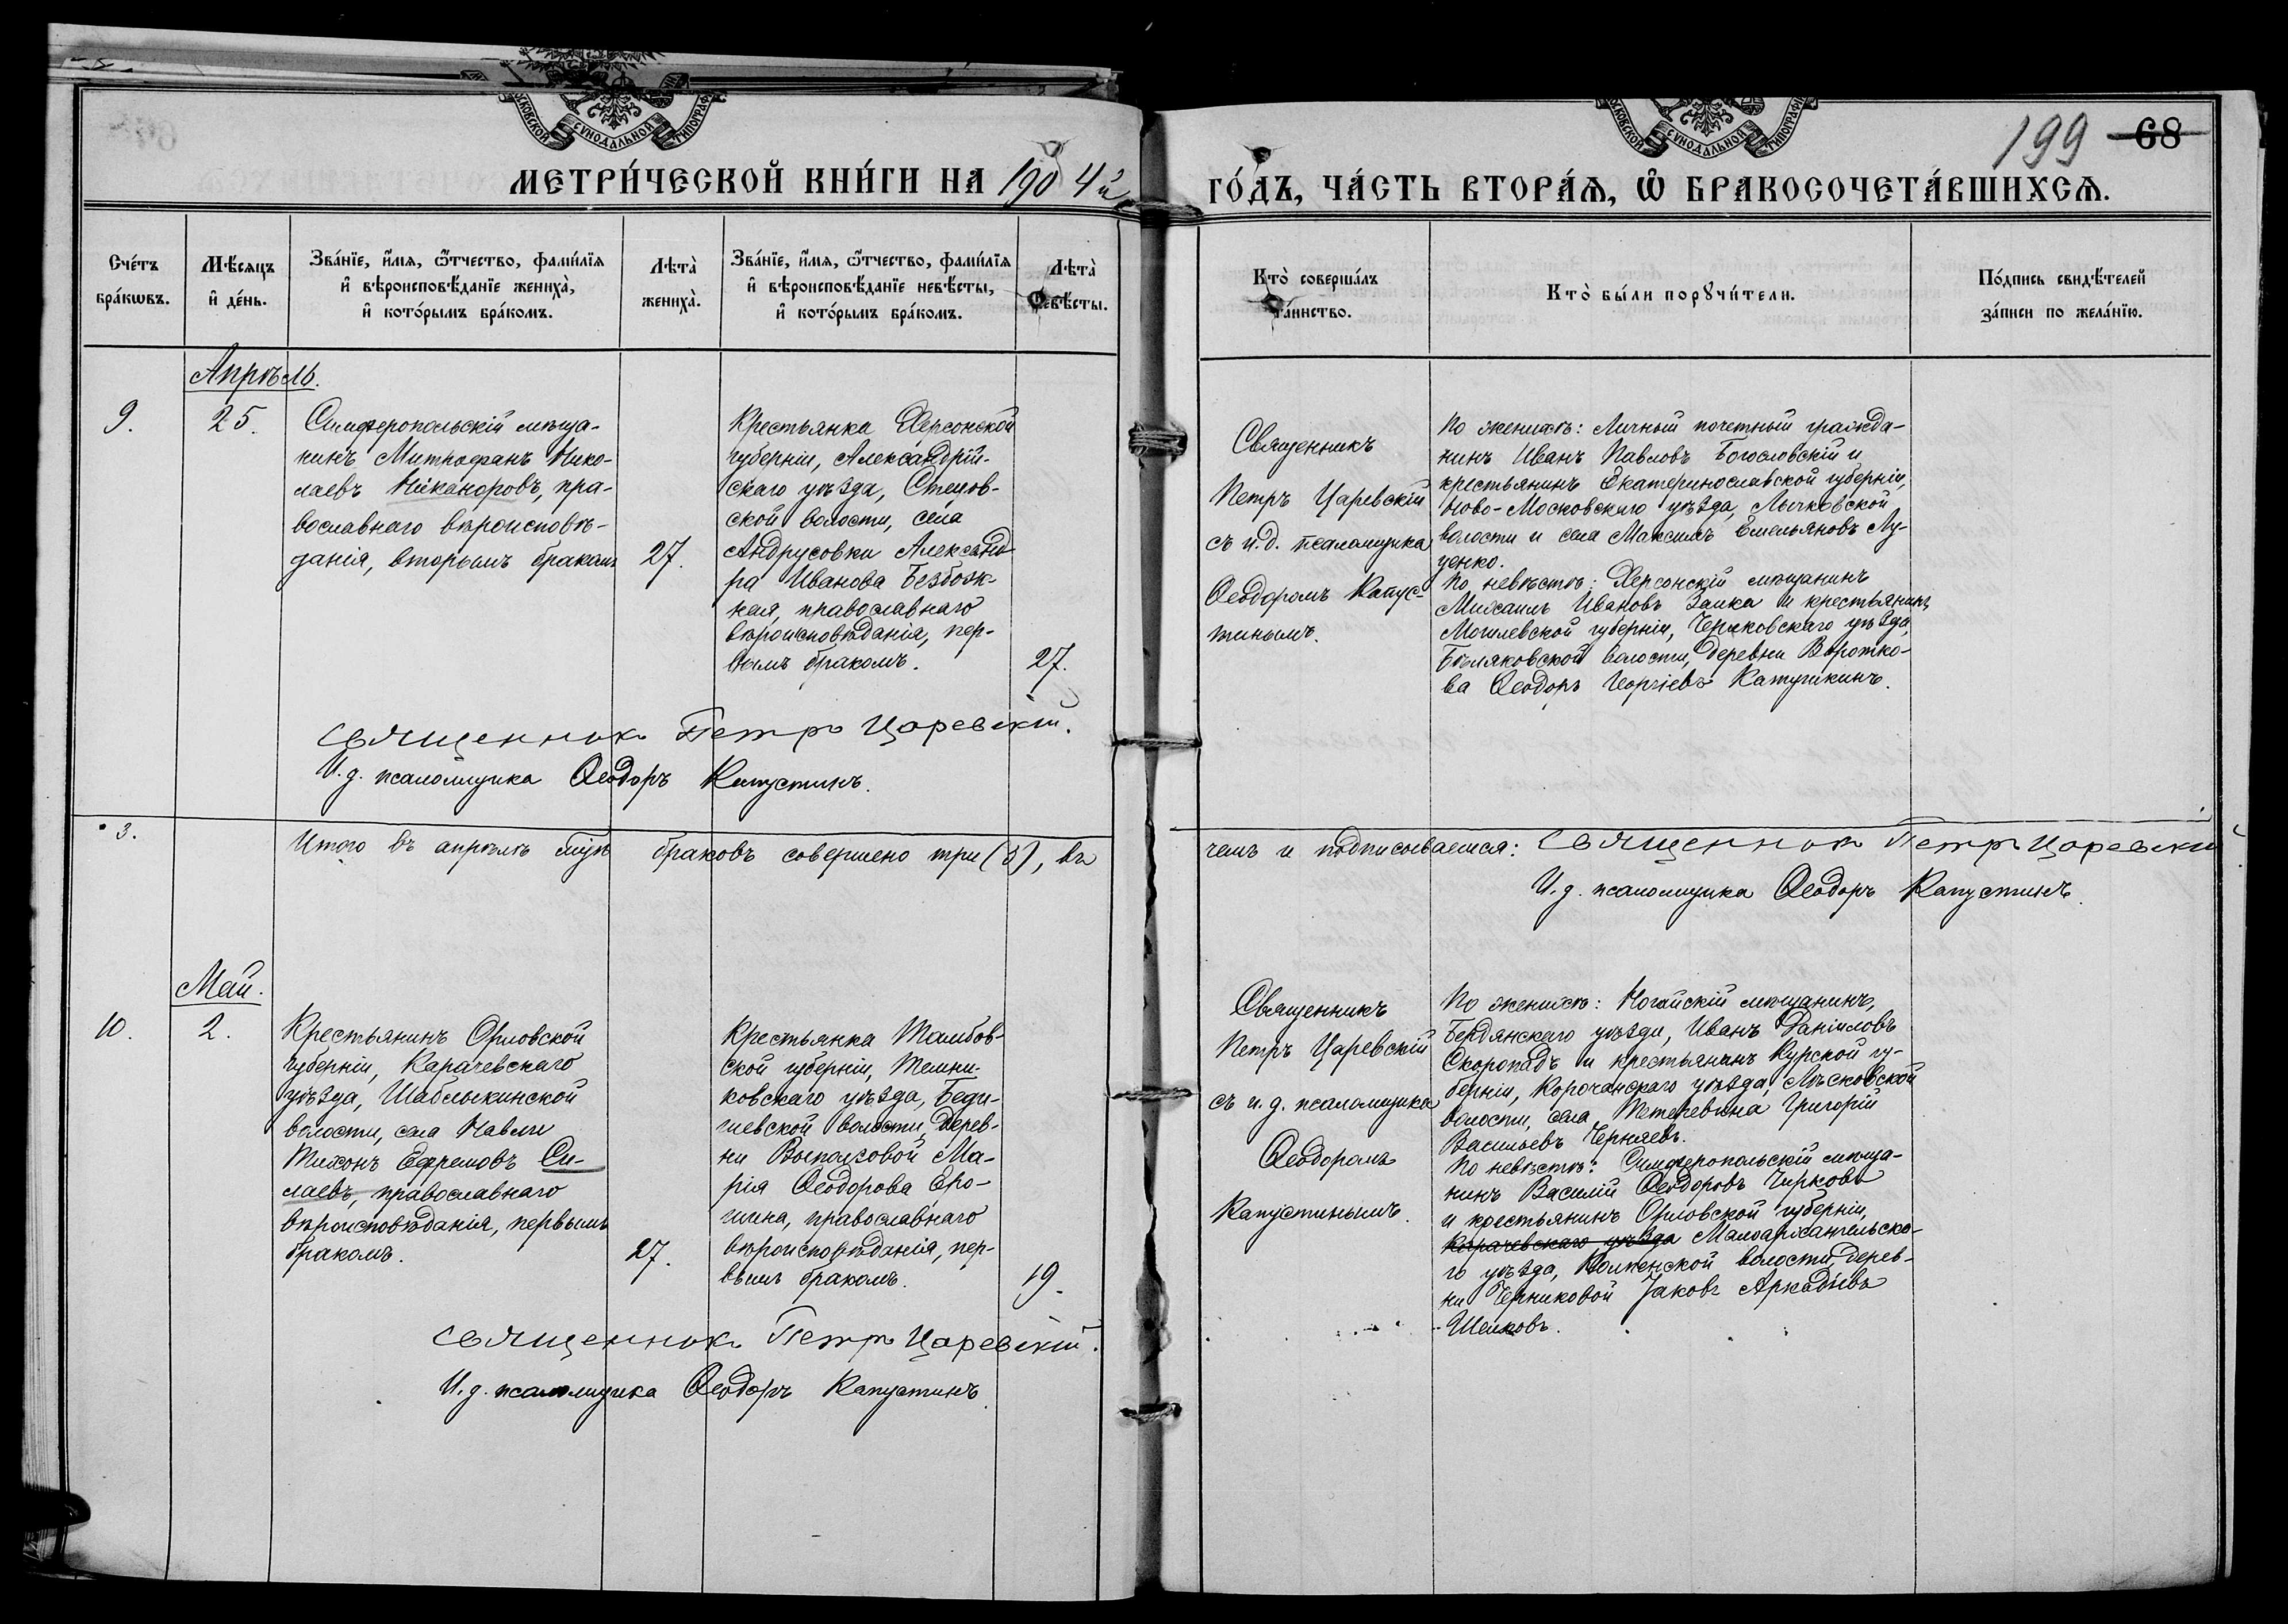 МОСКОВСКОЙ СУНОДАЛЬНОЙ ТИПОГРАФІИ
МОСКОВСКОЙ СУНОДАЛЬНОЙ ТИПОГРАФІИ
199 68
МЕТРИ́ЧЕСКОЙ КНИ́ГИ НА 1904й
ГО́ДЪ, ЧА́СТЬ ВТОРА́Ѧ, Ѽ БРАКОСОЧЕТА́ВШИХСѦ.
Сче́тъ
бра́кѡвъ.
Мѣ́сѧцъ
и҆ де́нь.
Зва́нїе, и҆́мѧ, ѻ҆́тчество, фами́лїѧ
и҆ вѣроисповѣ́данїе жениха̀,
и҆ кото́рымъ бра́комъ.
Лѣта̀
жениха̀.
Зва́нїе, и҆́мѧ, ѻ҆́тчество, фами́лїѧ
и҆ вѣроисповѣ́данїе невѣ́сты,
и҆ кото́рымъ бра́комъ.
Лѣта̀
невѣ́сты.
Кто̀ соверша́лъ
та́инство.
Кто̀ бы́ли порꙋчи́тели.
По́дпись свидѣ́телей
за́писи по жела́нїю.
Апрѣль.
9.
25.
Симферопольскій мѣща-
нинъ Митрофанъ Нико-
лаевъ Никаноровъ, пра-
вославнаго вѣроисповѣ-
данія, вторымъ бракомъ
27.
Крестьянка Херсонской
губерніи, Александрій-
скаго уѣзда, Стецов-
ской волости, села
Андрусовки Александ-
ра Иванова Безбож-
ная, православнаго
вѣроисповѣданія, пер-
вымъ бракомъ.
27.
Священникъ
Петръ Царевскій
съ и.д. псаломщика
Ѳеодоромъ Капус-
тинымъ.
По женихѣ: Личный почетный гражда-
нинъ Иванъ Павловъ Богословскій и
крестьянинъ Екатеринославской губерніи,
Ново-Московскаго уѣзда, Лычковской
волости и села Максимъ Емельяновъ Лу-
ценко.
По невѣстѣ: Херсонскій мѣщанинъ
Михаилъ Ивановъ Заика и крестьянинъ
Могилевской губерніи, Чериковскаго уѣзда,
волости, деревни
Ѳеодоръ Георгіевъ Катушкинъ.
Священникъ Петръ Царевскій.
И.д. псаломщика Ѳеодоръ Капустинъ.
3.
Итого въ апрѣлѣ м҃цѣ браковъ совершено три (3), въ
чемъ и подписываемся: Священникъ Петръ Царевскій
И.д. псаломщика Ѳеодоръ Капустинъ.
Май.
10.
2.
Крестьянинъ Орловской
губерніи, Карачевскаго
уѣзда, Шаблыкинской
волости, села Навли
Тихонъ Ефремовъ Си-
лаевъ, православнаго
вѣроисповѣданія, первымъ
бракомъ.
27.
Крестьянка Тамбов-
ской губерніи, Темни-
ковскаго уѣзда, Беди-
шевской волости, дерев-
ни Выползовой Ма-
рія Ѳеодорова Еро-
шина, православнаго
вѣроисповѣданія, пер-
вымъ бракомъ.
19.
Священникъ
Петръ Царевскій
съ и.д. псаломщика
Ѳеодоромъ
Капустинымъ.
По женихѣ: Ногайскій мѣщанинъ,
Бердянскаго уѣзда, Иванъ Даніиловъ
Скоропадъ и крестьянинъ Курской гу-
берніи, Корочанскаго уѣзда, Лѣсковской
волости, села Григорій
Васильевъ Черняевъ.
По невѣстѣ: Симферопольскій мѣща-
нинъ Василій Ѳеодоровъ Чирковъ
и крестьянинъ Орловской губерніи,
Карачевскаго уѣзда Малоархангельска-
го уѣзда, волости, дерев-
ни Черниковой Іаковъ Аркадіевъ
Шелковъ.
Священникъ Петръ Царевскій.
И.д. псаломщика Ѳеодоръ Капустинъ.